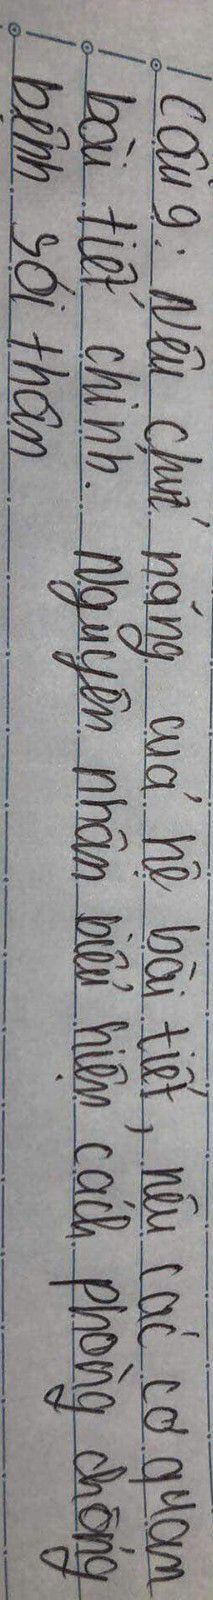 Câu 9: Nêu chức năng của hệ bài tiết, nêu các cơ quan
bài tiết chính. Nguyên nhân biểu hiện cách phòng chống
bệnh sỏi thân